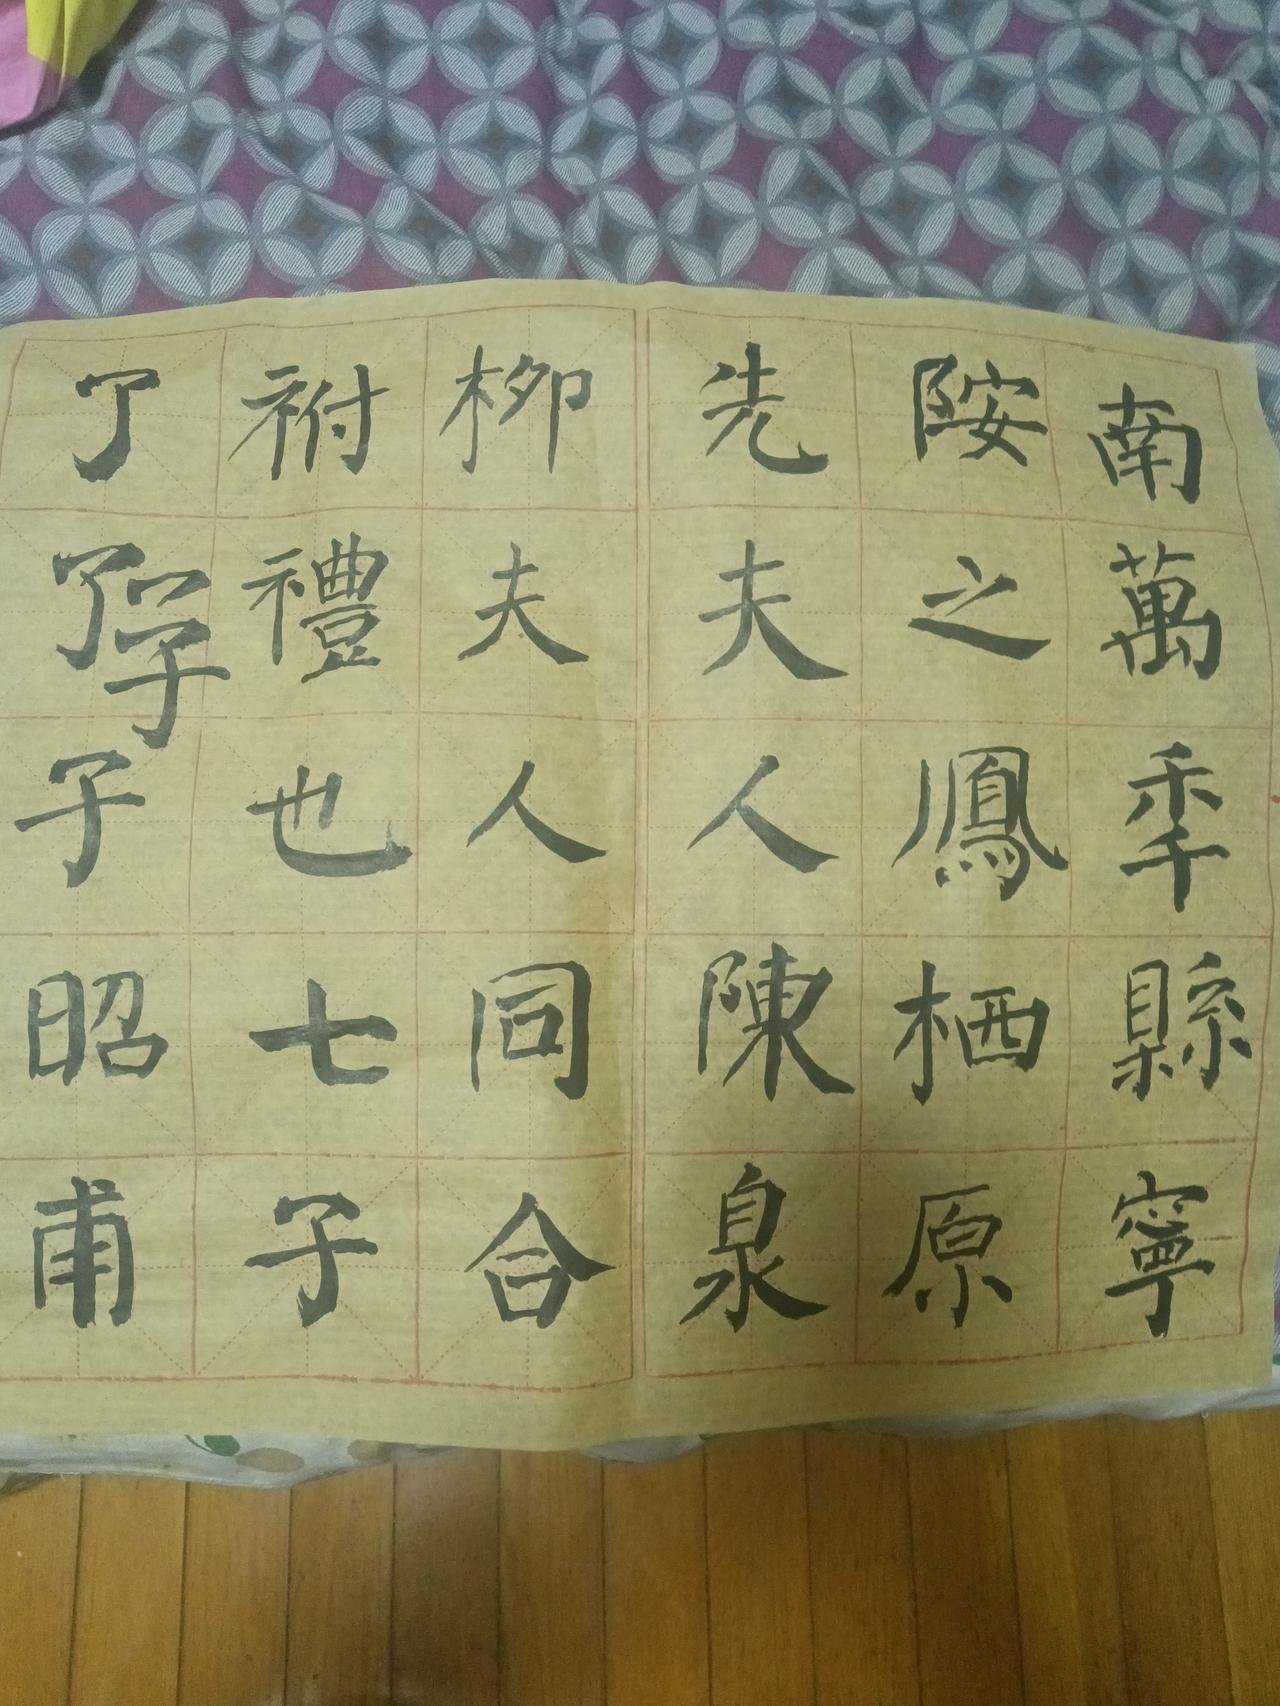 南萬秊縣寧
之鳳栖原
先夫人陳泉
柳夫人同合
祔禮也七子
了了子昭甫